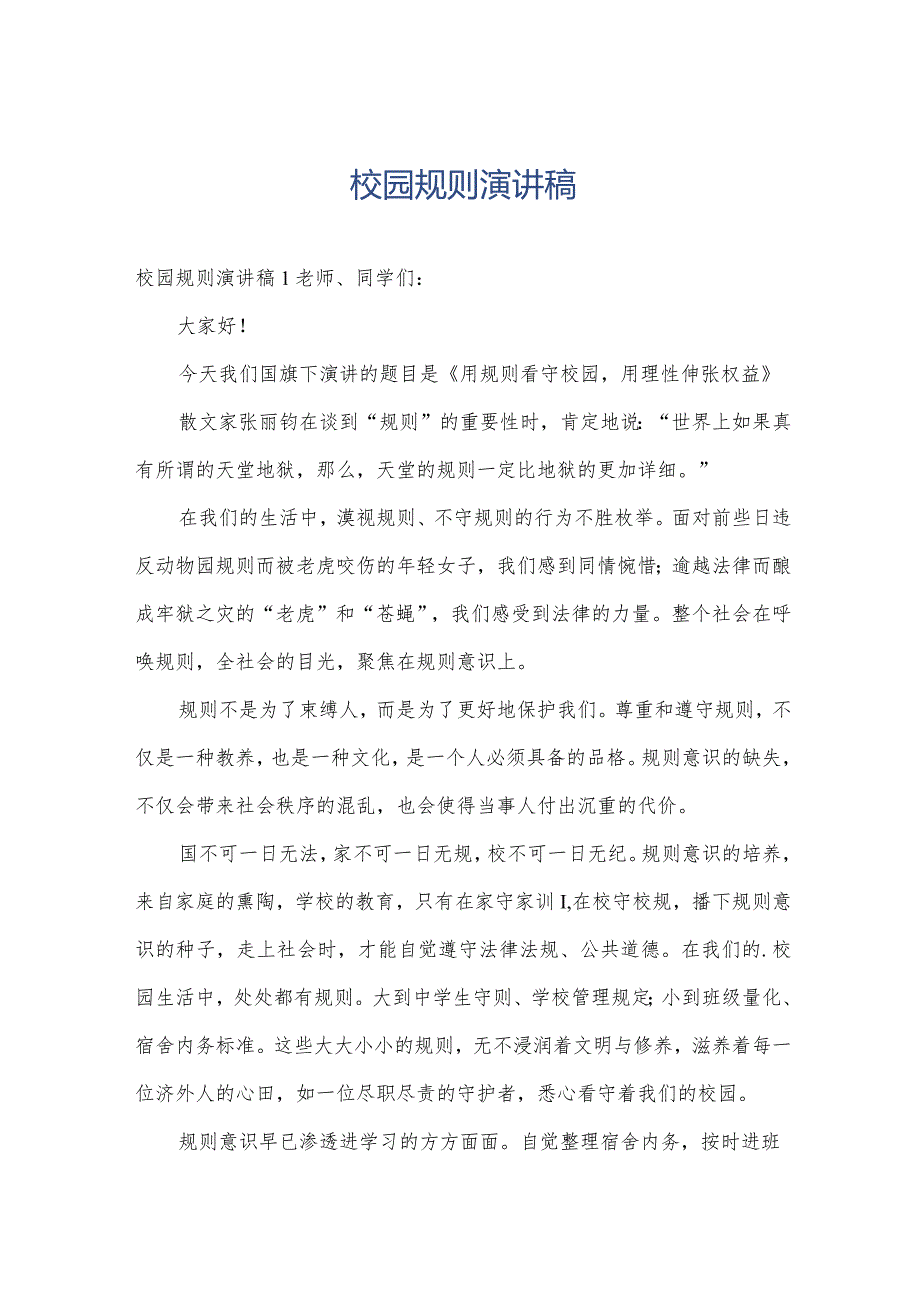 校园规则演讲稿
校园规则演讲稿1老师、同学们：
大家好！
今天我们国旗下演讲的题目是《用规则看守校园，用理性伸张权益》
散文家张丽钧在谈到“规则”的重要性时，肯定地说：“世界上如果真
有所谓的天堂地狱，那么，天堂的规则一定比地狱的更加详细。”
在我们的生活中，漠视规则、不守规则的行为不胜枚举。面对前些日违
反动物园规则而被老虎咬伤的年轻女子，我们感到同情惋惜；逾越法律而酿
成牢狱之灾的“老虎”和“苍蝇”，我们感受到法律的力量。整个社会在呼
唤规则，全社会的目光，聚焦在规则意识上。
规则不是为了束缚人，而是为了更好地保护我们。尊重和遵守规则，不
仅是一种教养，也是一种文化，是一个人必须具备的品格。规则意识的缺失，
不仅会带来社会秩序的混乱，也会使得当事人付出沉重的代价。
国不可一日无法，家不可一日无规，校不可一日无纪。规则意识的培养，
来自家庭的熏陶，学校的教育，只有在家守家训I,在校守校规，播下规则意
识的种子，走上社会时，才能自觉遵守法律法规、公共道德。在我们的.校
园生活中，处处都有规则。大到中学生守则、学校管理规定；小到班级量化、
宿舍内务标准。这些大大小小的规则，无不浸润着文明与修养，滋养着每一
位济外人的心田，如一位尽职尽责的守护者，悉心看守着我们的校园。
规则意识早已渗透进学习的方方面面。自觉整理宿舍内务，按时进班